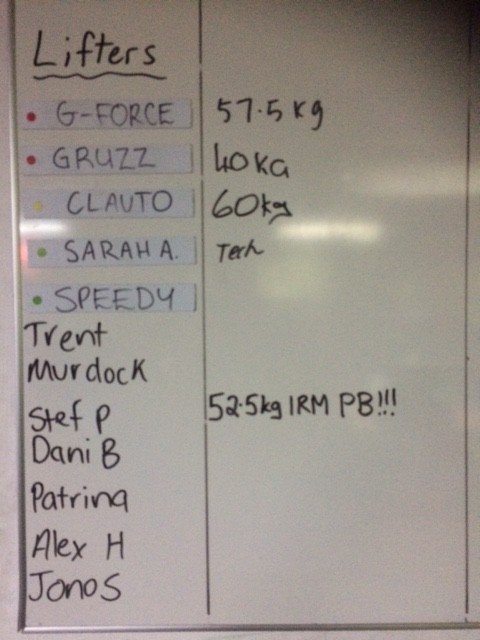 Lifters
• G-FORCE 57.5 kg
• GRUZZ 40KG
• CLAUTO 60kg
• SARAH A. Tech
• SPEEDY
Trent
Murdock
Stef P 52.5kg 1RM PB!!!
Dani B
Patrina
Alex H
Jono S